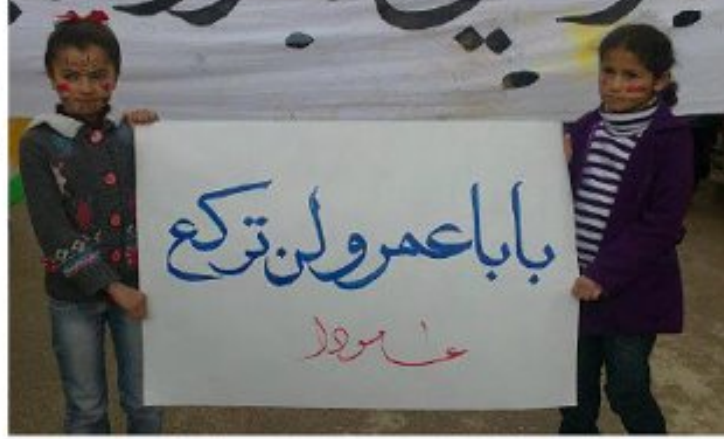 بابا عمرو لن تركع
عامودا